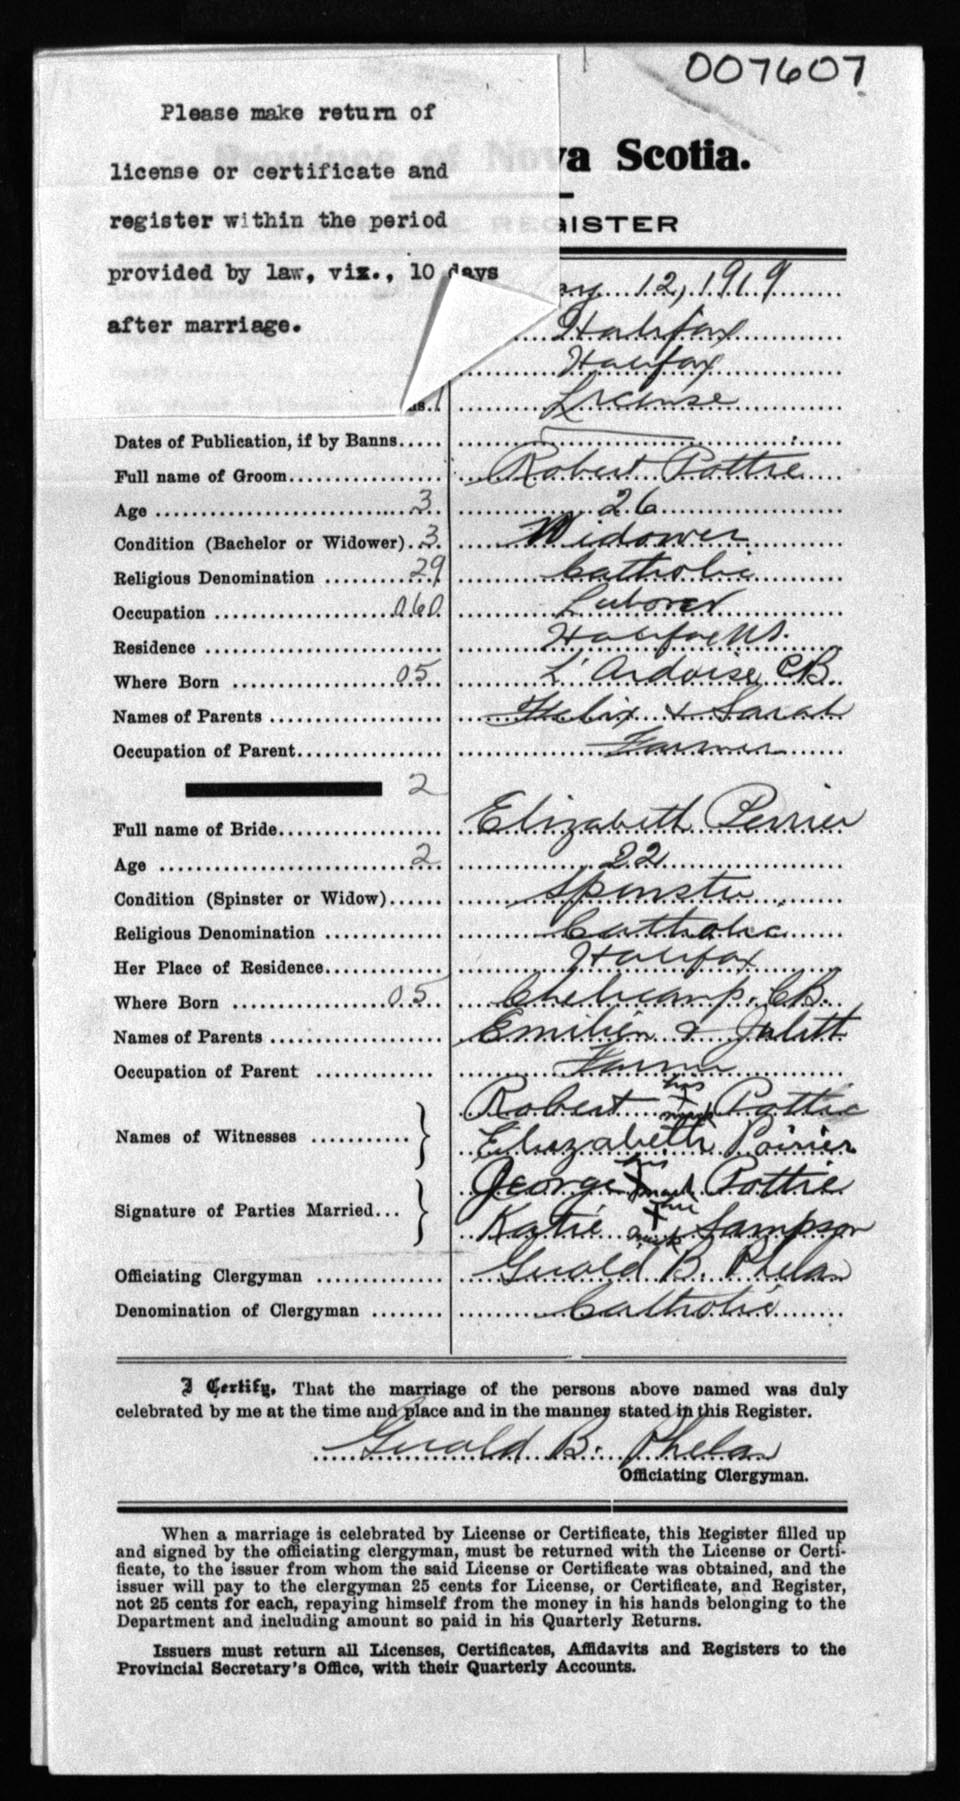 007607
Please make return of
license or certificate and
register within the period
provided by law, viz., 10 days
after marriage.
Province of Nova Scotia.
REGISTER
12, 1919
Halifax
Halifax
License
Dates of Publication, if by Banns.....
Full name of Groom.................. Robert Pottie
Age ............................3.. 26
Condition (Bachelor or Widower)..3. Widower
Religious Denomination ..........29 Catholic
Occupation ....................060. Laborer
Residence .......................... Halifax NS.
Where Born ..................05.. L'Ardoise CB
Names of Parents ................... Felix & Sarah
Occupation of Parent................ Farmer
2
Full name of Bride.................. Elizabeth Perrier
Age ............................2.. 22
Condition (Spinster or Widow)...... Spinster
Religious Denomination ............. Catholic
Her Place of Residence............. Halifax
Where Born ..................05.. Chelicamp. CB.
Names of Parents ................... Emilien & Julitt
Occupation of Parent ............. Farmer
Robert his x mark Pottie
Names of Witnesses ........... } Elizabeth Poirier
George his x mark Pottie
Signature of Parties Married... } Katie her x mark Sampson
Officiating Clergyman .............. Gerald B. Phelan
Denomination of Clergyman ........ Catholic
I Certify, That the marriage of the persons above named was duly
celebrated by me at the time and place and in the manner stated in this Register.
Gerald B. Phelan
Officiating Clergyman.
When a marriage is celebrated by License or Certificate, this Register filled up
and signed by the officiating clergyman, must be returned with the License or Certi-
ficate, to the issuer from whom the said License or Certificate was obtained, and the
issuer will pay to the clergyman 25 cents for License, or Certificate, and Register,
not 25 cents for each, repaying himself from the money in his hands belonging to the
Department and including amount so paid in his Quarterly Returns.
Issuers must return all Licenses, Certificates, Affidavits and Registers to the
Provincial Secretary's Office, with their Quarterly Accounts.